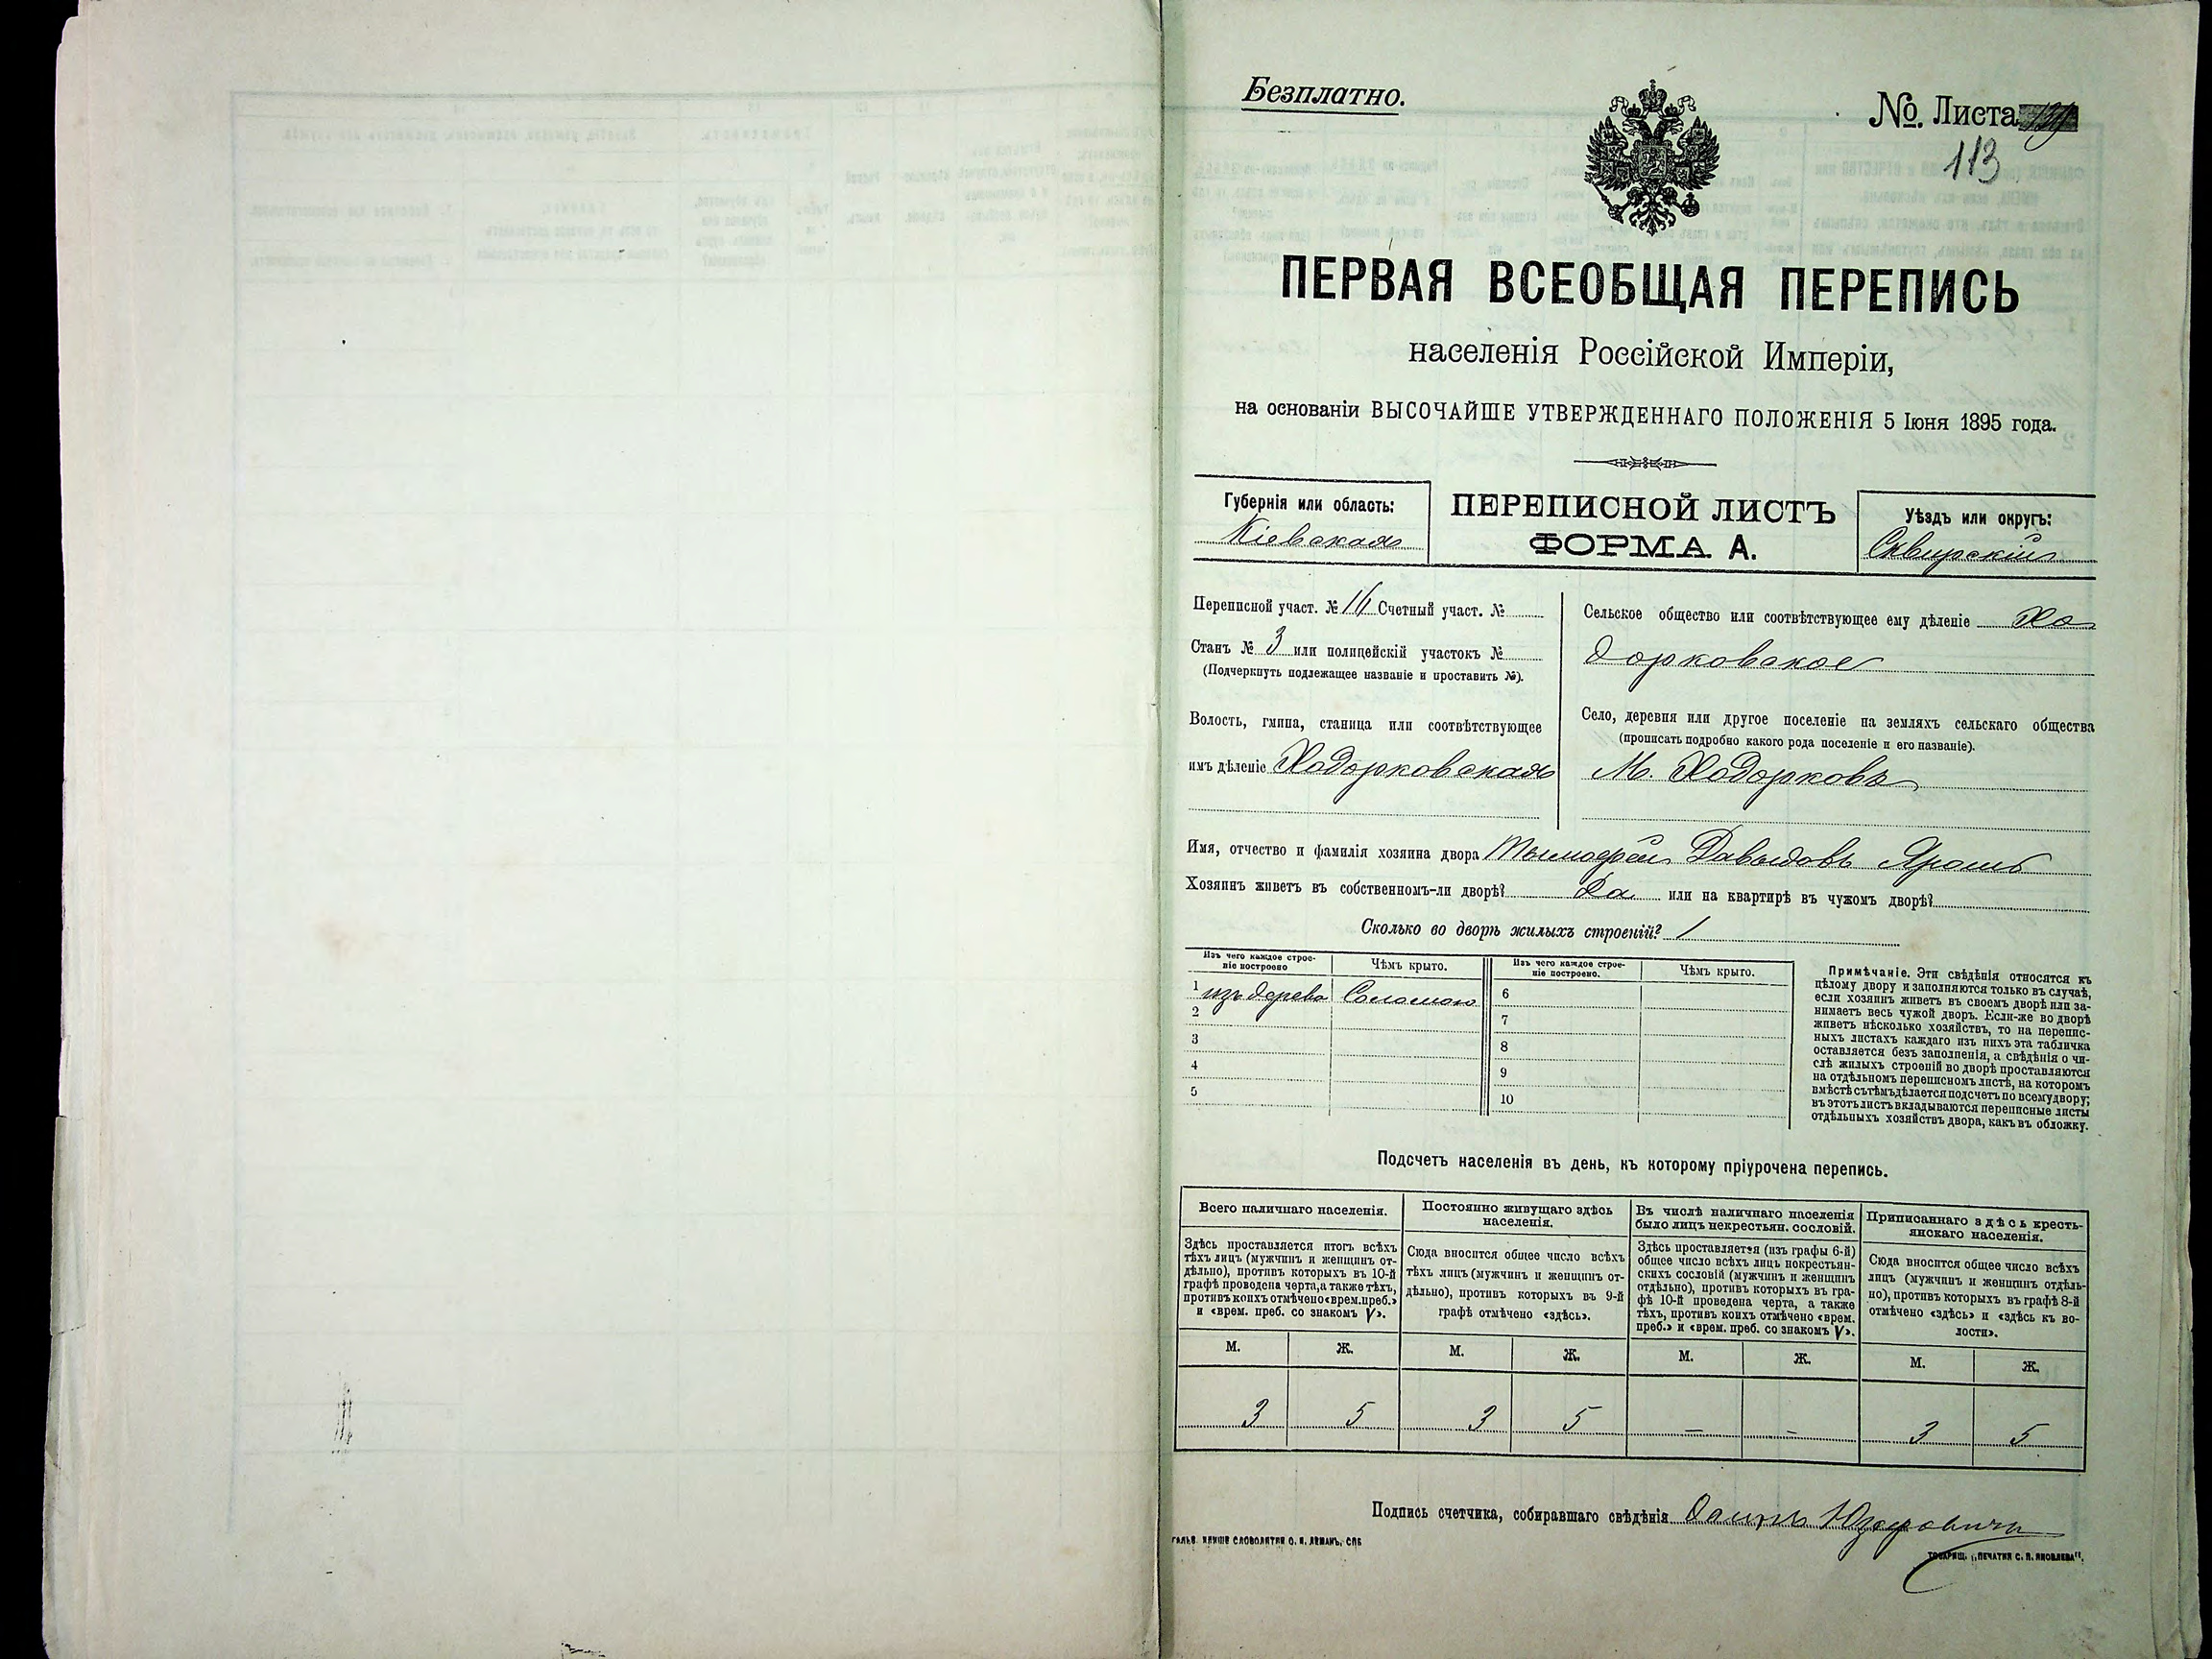 Безплатно.
№. Листа
113
ПЕРВАЯ ВСЕОБЩАЯ ПЕРЕПИСЬ
населенія Россійской Имперіи,
на основаніи ВЫСОЧАЙШЕ УТВЕРЖДЕННАГО ПОЛОЖЕНІЯ 5 Іюня 1895 года.
Губернія или область:
Кіевская
ПЕРЕПИСНОЙ ЛИСТЪ
ФОРМА А.
Уѣздъ или округъ:
Сквирскій
Переписной участ. № 16 Счетный участ. №
Станъ № 3 или полицейскій участокъ №
(Подчеркнуть подлежащее названіе и проставить №).
Волость, гмина, станица или соотвѣтствующее
имъ дѣленіе Ходорковская
Сельское общество или соотвѣтствующее ему дѣленіе Хо
дорковское
Село, деревня или другое поселеніе на земляхъ сельскаго общества
(прописать подробно какого рода поселеніе и его названіе).
М. Ходорковъ
Имя, отчество и фамилія хозяина двора Тымофей Давыдовъ Ярошъ
Хозяинъ живетъ въ собственномъ-ли дворѣ? Да или на квартирѣ въ чужомъ дворѣ?
Сколько во дворѣ жилыхъ строеній? 1
Изъ чего каждое строе-
ніе построено
Чѣмъ крыто.
Изъ чего каждое строе-
ніе построено.
Чѣмъ крыто.
1 изъ дерева Соломою 6
2 7
3 8
4 9
5 10
Примѣчаніе. Эти свѣдѣнія относятся къ
цѣлому двору и заполняются только въ случаѣ,
если хозяинъ живетъ въ своемъ дворѣ или за-
нимаетъ весь чужой дворъ. Если-же во дворѣ
живетъ нѣсколько хозяйствъ, то на перепис-
ныхъ листахъ каждаго изъ нихъ эта табличка
оставляется безъ заполненія, а свѣдѣнія о чи-
слѣ жилыхъ строеній во дворѣ проставляются
на отдѣльномъ переписномъ листѣ, на которомъ
вмѣстѣ съ тѣмъ дѣлается подсчетъ по всему двору;
въ этотъ листъ вкладываются переписные листы
отдѣльныхъ хозяйствъ двора, какъ въ обложку.
Подсчетъ населенія въ день, къ которому пріурочена перепись.
Всего наличнаго населенія.
Здѣсь проставляется итогъ всѣхъ
тѣхъ лицъ (мужчинъ и женщинъ от-
дѣльно), противъ которыхъ въ 10-й
графѣ проведена черта, а также тѣхъ,
противъ коихъ отмѣчено «врем. преб.»
и «врем. преб. со знакомъ V».
Постоянно живущаго здѣсь
населенія.
Сюда вносится общее число всѣхъ
тѣхъ лицъ (мужчинъ и женщинъ от-
дѣльно), противъ которыхъ въ 9-й
графѣ отмѣчено «здѣсь».
Въ числѣ наличнаго населенія
было лицъ некрестьян. сословій.
Здѣсь проставляется (изъ графы 6-й)
общее число всѣхъ лицъ некрестьян-
скихъ сословій (мужчинъ и женщинъ
отдѣльно), противъ которыхъ въ гра-
фѣ 10-й проведена черта, а также
тѣхъ, противъ коихъ отмѣчено «врем.
преб.» и «врем. преб. со знакомъ V».
Приписаннаго здѣсь кресть-
янскаго населенія.
Сюда вносится общее число всѣхъ
лицъ (мужчинъ и женщинъ отдѣль-
но), противъ которыхъ въ графѣ 8-й
отмѣчено «здѣсь» и «здѣсь къ во-
лости».
М. Ж. М. Ж. М. Ж. М. Ж.
3 5 3 5 – – 3 5
Подпись счетчика, собиравшаго свѣдѣнія
СЛОВОЛИТНИ О. И. ЛЕМАНЪ, СПБ
ТОВАРИЩ. „ПЕЧАТНЯ С. П. ЯКОВЛЕВА".